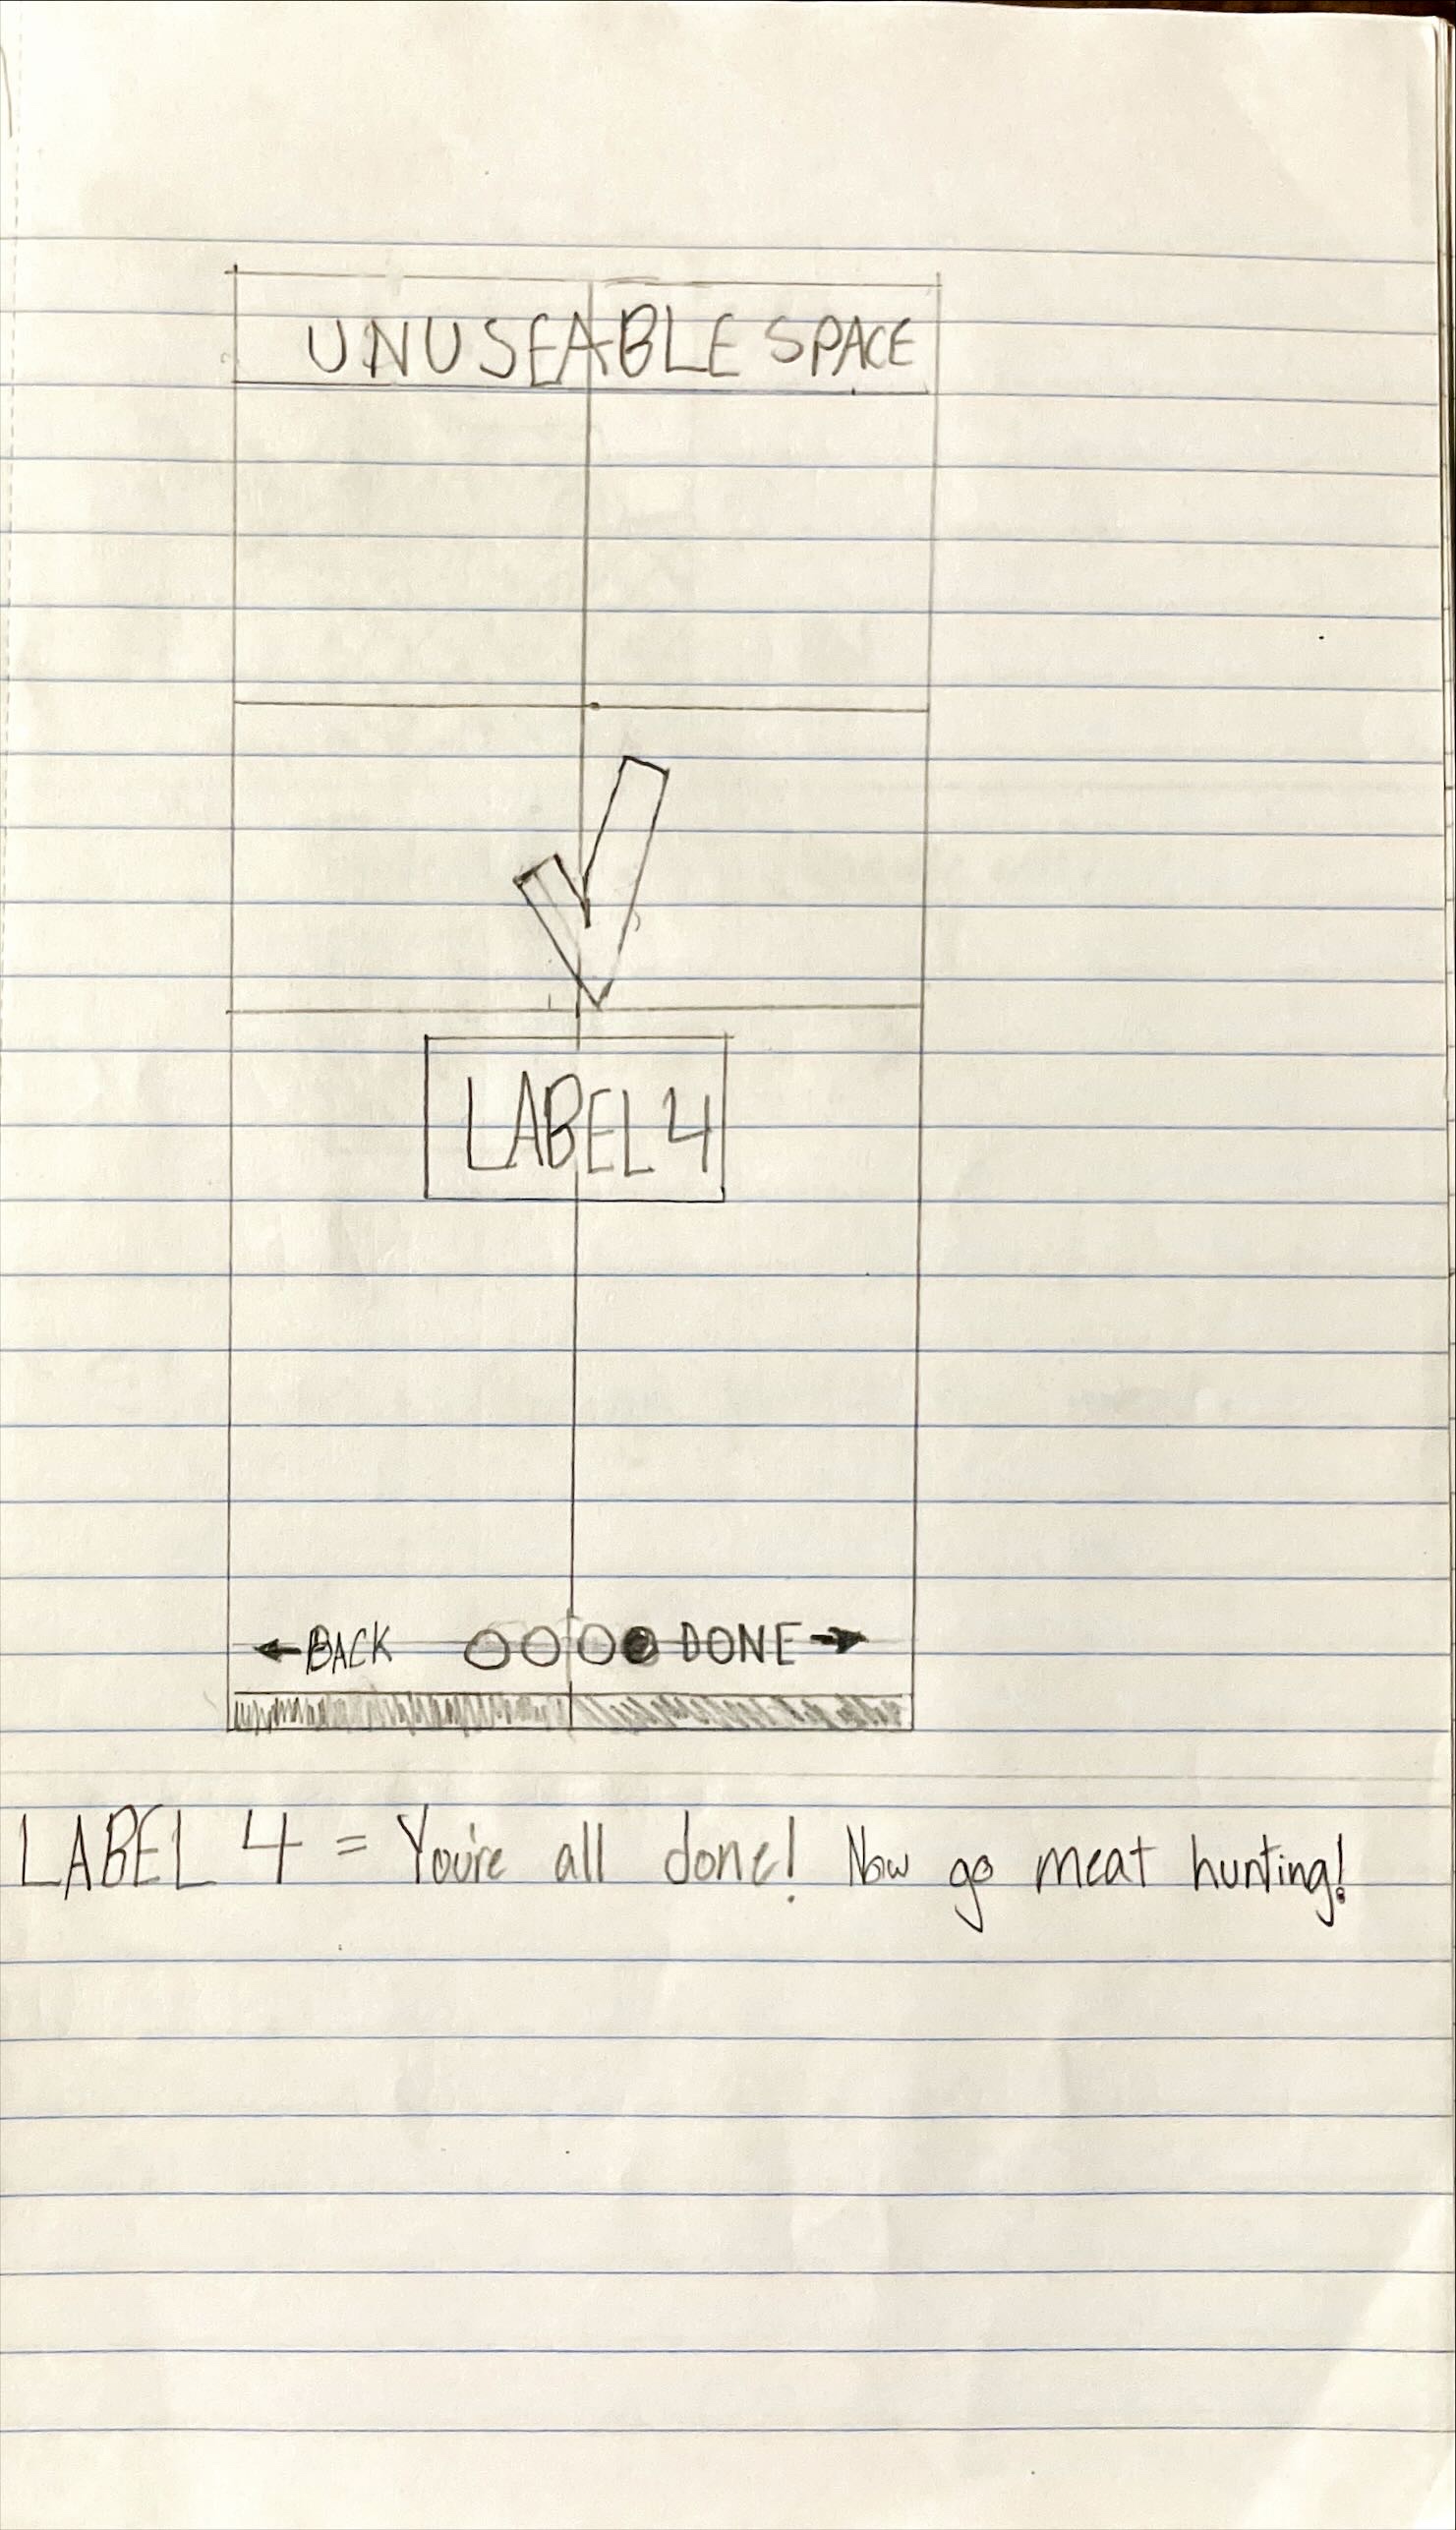 UNUSEABLE SPACE
LABEL 4
←BACK OOO● DONE→
LABEL 4 = You're all done! Now go meat hunting!